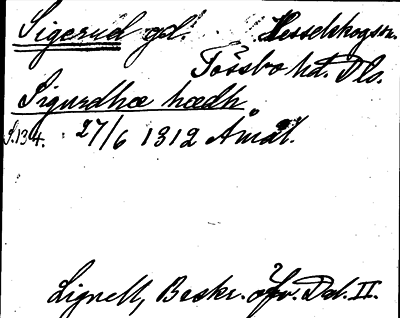 Sigerud gd. Hesselskogs sn.
Tössbo hd. Dls.
Sigurdhæ hædh
S. 134. 27/6 1312 Åmål.
Lignell, Beskr. öfv. Dal. II.